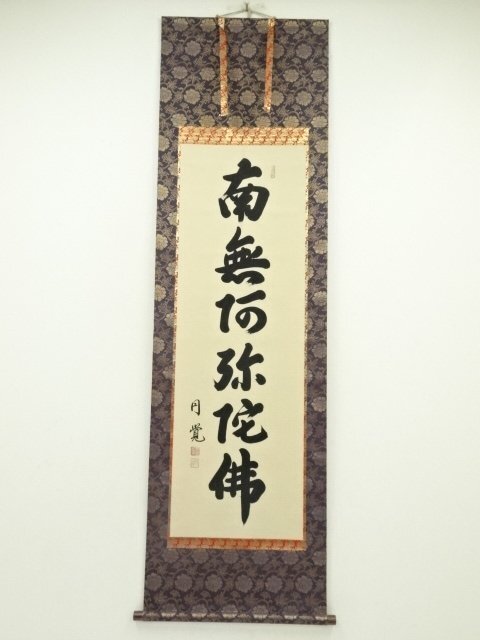 南無阿弥陀佛
円覺